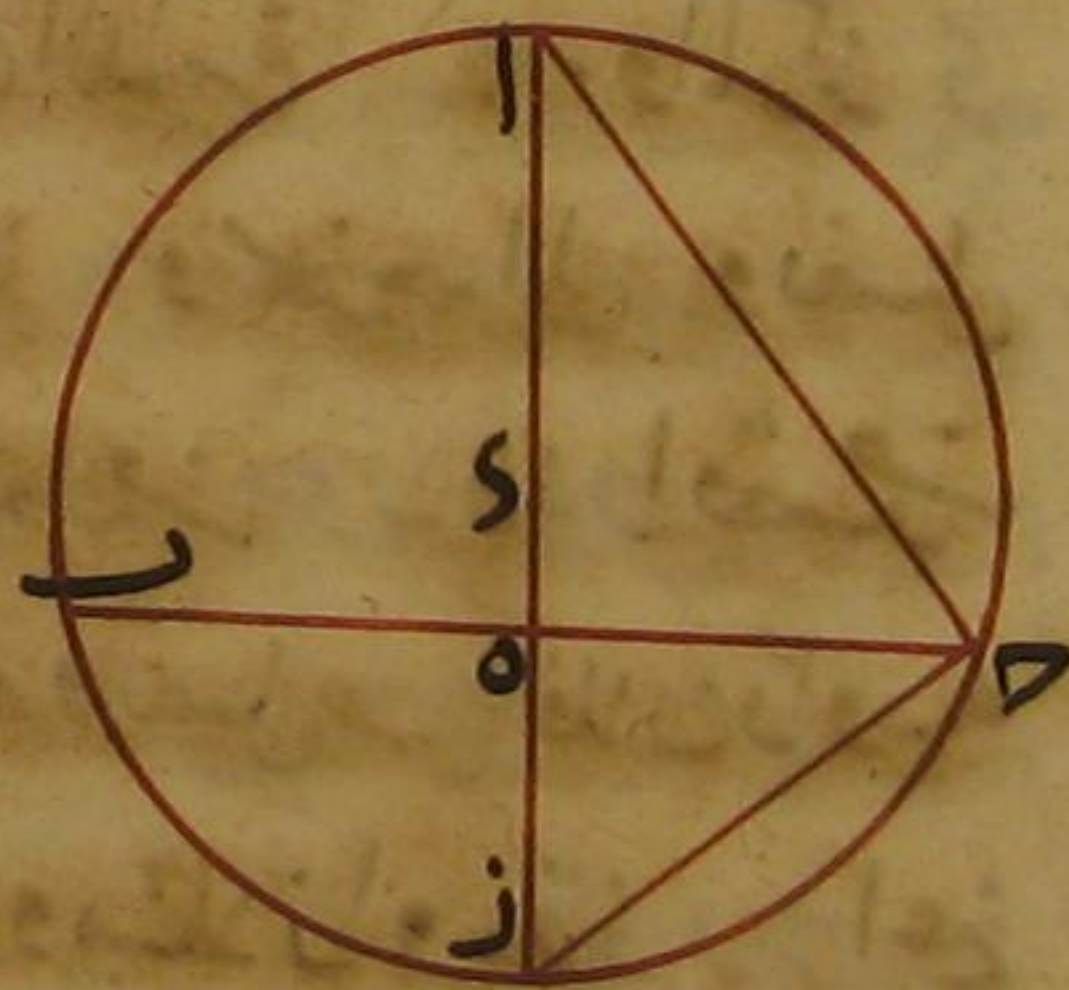 ا
د
ٮ
ه
ح
ز